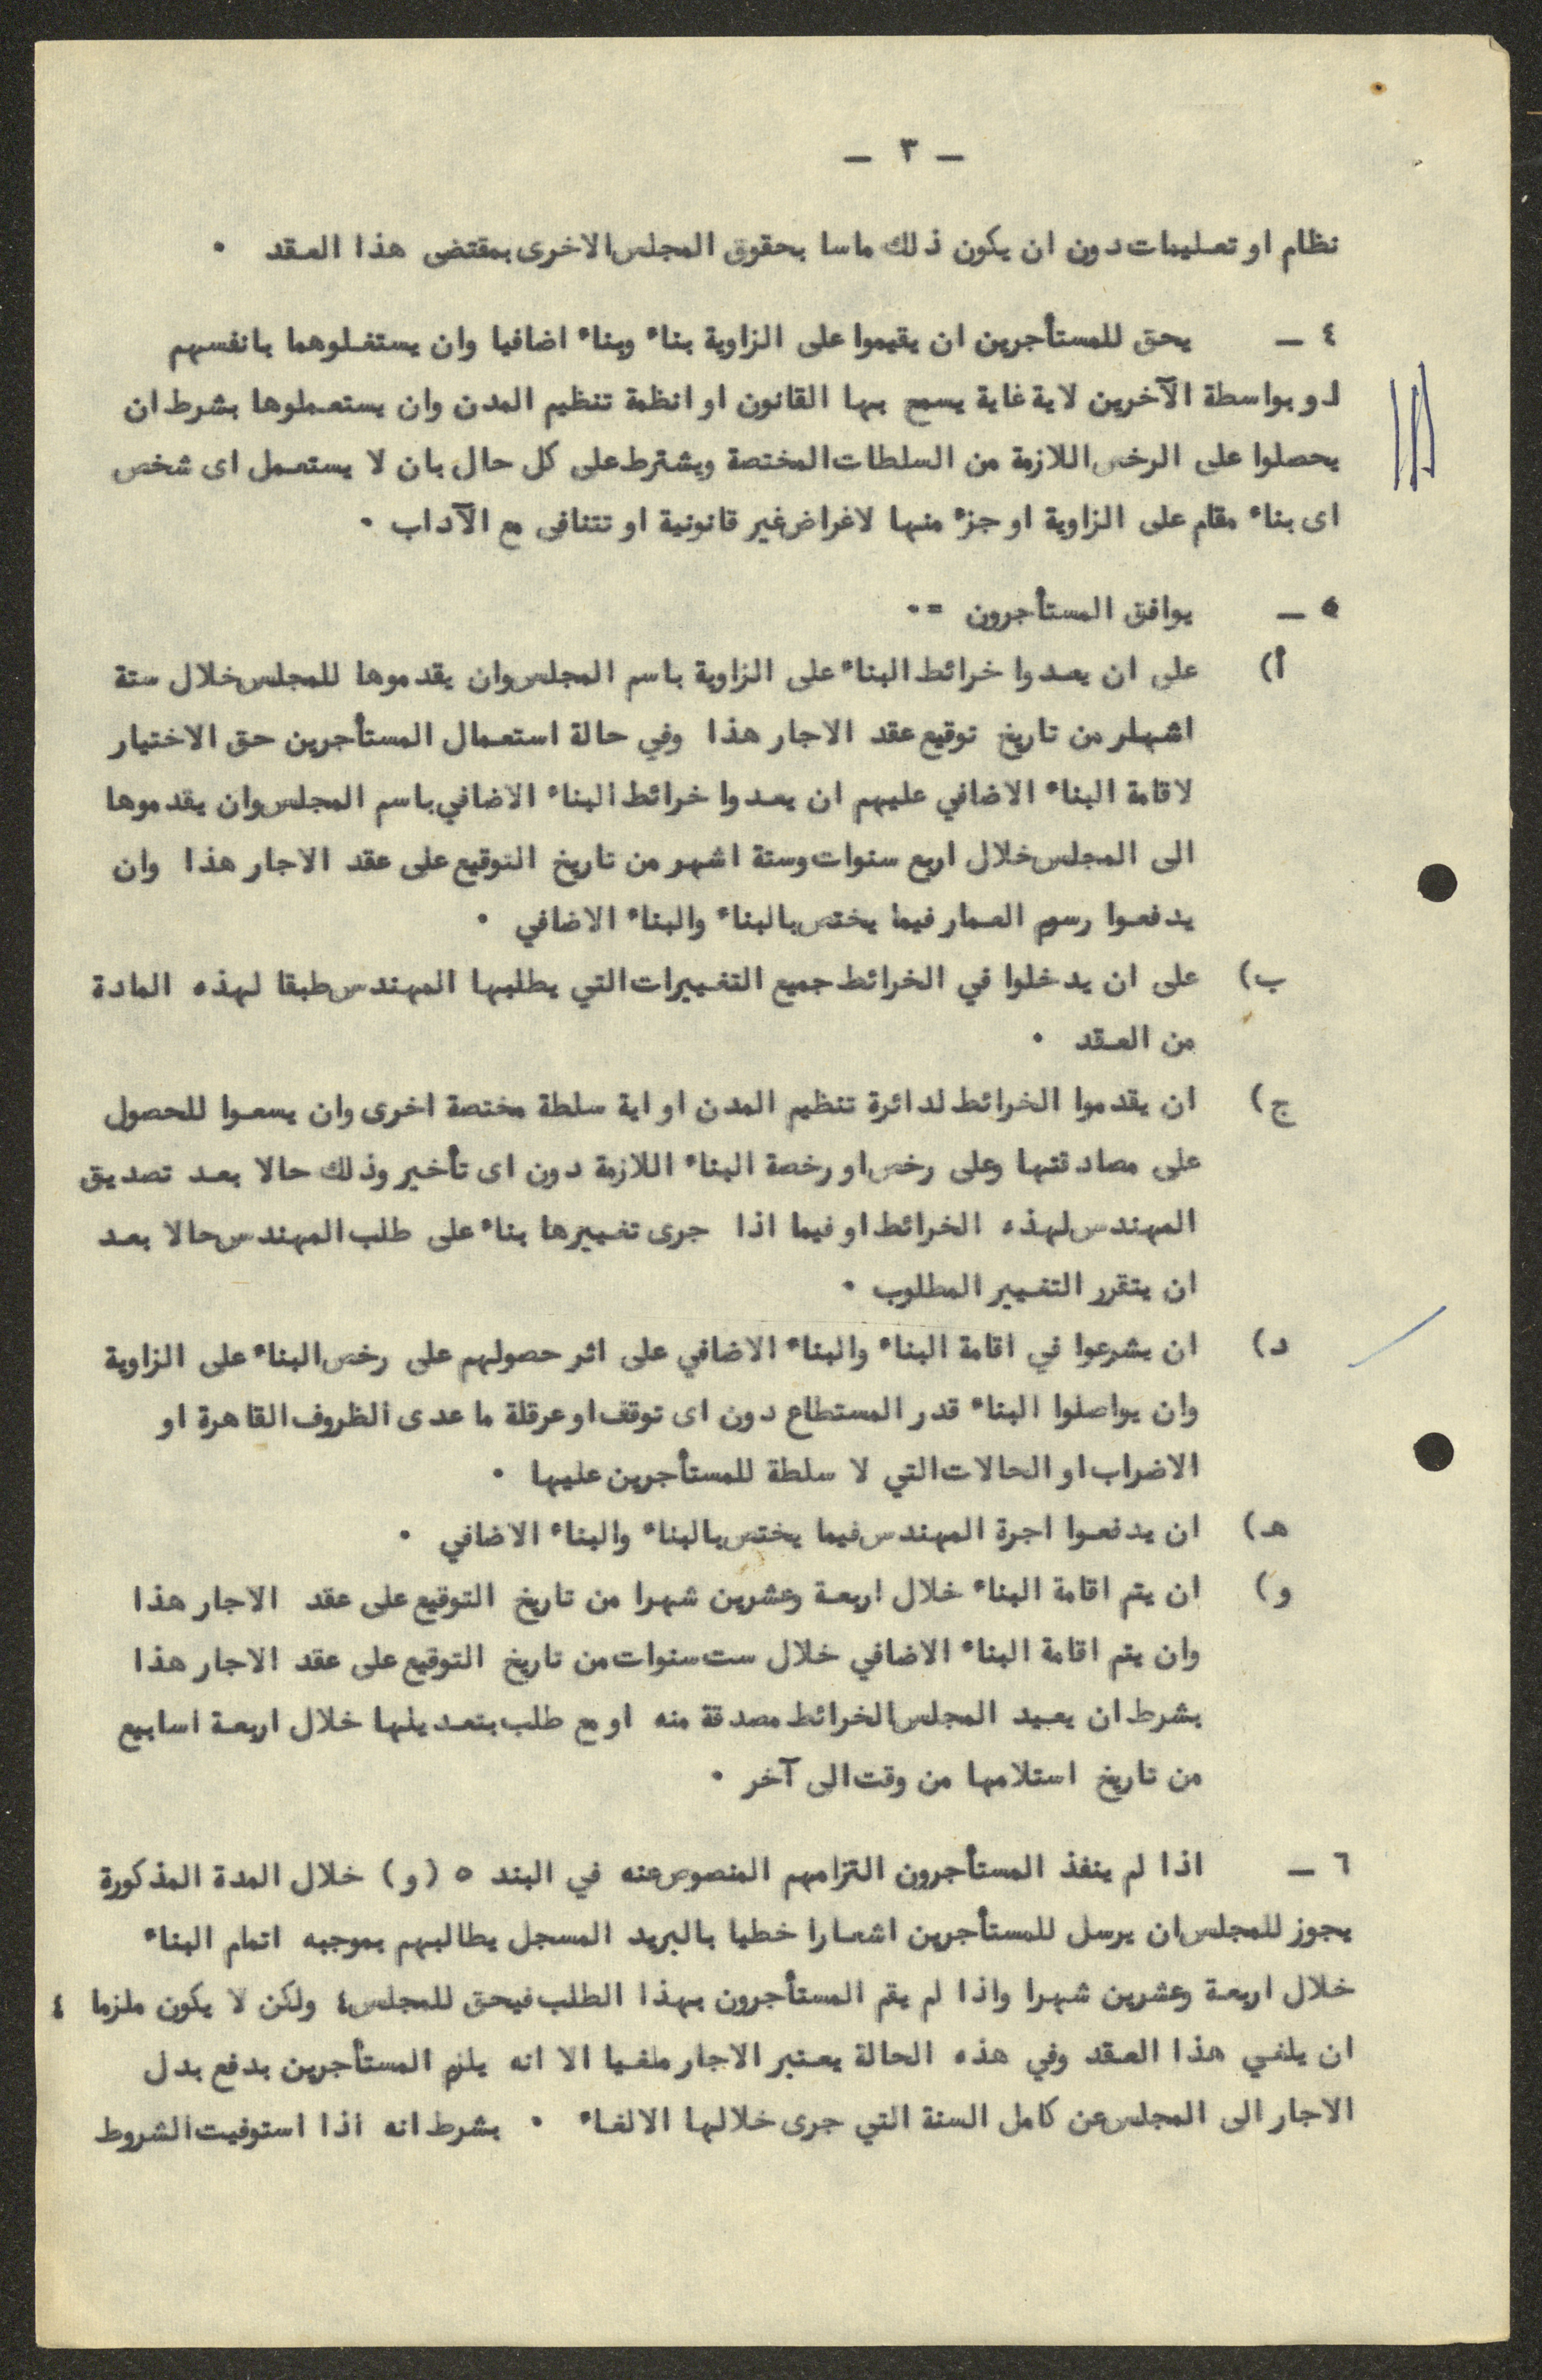 — ٣ —
نظام او تعليمات دون ان يكون ذلك ماسا بحقوق المجلس الاخرى بمقتضى هذا العقد ٠
٤ — يحق للمستأجرين ان يقيموا على الزاوية بناء وبناء اضافيا وان يستغلوهما بانفسهم
او بواسطة الآخرين لاية غاية يسمح بها القانون او انظمة تنظيم المدن وان يستعملوها بشرط ان
يحصلوا على الرخص اللازمة من السلطات المختصة ويشترط على كل حال بان لا يستعمل اى شخص
اى بناء مقام على الزاوية او جزء منها لاغراض غير قانونية او تتنافى مع الآداب ٠
٥ — يوافق المستأجرون =٠
أ) على ان يعدوا خرائط البناء على الزاوية باسم المجلس وان يقدموها للمجلس خلال ستة
اشهر من تاريخ توقيع عقد الاجار هذا وفي حالة استعمال المستأجرين حق الاختيار
لاقامة البناء الاضافي عليهم ان يعدوا خرائط البناء الاضافي باسم المجلس وان يقدموها
الى المجلس خلال اربع سنوات وستة اشهر من تاريخ التوقيع على عقد الاجار هذا وان
يدفعوا رسوم العمار فيما يختص بالبناء والبناء الاضافي ٠
ب) على ان يدخلوا في الخرائط جميع التغييرات التي يطلبها المهندس طبقا لهذه المادة
من العقد ٠
ج) ان يقدموا الخرائط لدائرة تنظيم المدن او اية سلطة مختصة اخرى وان يسعوا للحصول
على مصادقتها وعلى رخص او رخصة البناء اللازمة دون اى تأخير وذلك حالا بعد تصديق
المهندس لهذه الخرائط او فيما اذا جرى تغييرها بناء على طلب المهندس حالا بعد
ان يتقرر التغيير المطلوب ٠
د) ان يشرعوا في اقامة البناء والبناء الاضافي على اثر حصولهم على رخص البناء على الزاوية
وان يواصلوا البناء قدر المستطاع دون اى توقف او عرقلة ما عدى الظروف القاهرة او
الاضراب او الحالات التي لا سلطة للمستأجرين عليها ٠
هـ) ان يدفعوا اجرة المهندس فيما يختص بالبناء والبناء الاضافي ٠
و) ان يتم اقامة البناء خلال اربعة وعشرين شهرا من تاريخ التوقيع على عقد الاجار هذا
وان يتم اقامة البناء الاضافي خلال ست سنوات من تاريخ التوقيع على عقد الاجار هذا
بشرط ان يعيد المجلس الخرائط مصدقة منه او مع طلب بتعديلها خلال اربعة اسابيع
من تاريخ استلامها من وقت الى آخر ٠
٦ — اذا لم ينفذ المستأجرون التزامهم المنصوص عنه في البند ٥ (و) خلال المدة المذكورة
يجوز للمجلس ان يرسل للمستأجرين اشعارا خطيا بالبريد المسجل يطالبهم بموجبه اتمام البناء
خلال اربعة وعشرين شهرا واذا لم يقم المستأجرون بهذا الطلب فيحق للمجلس ٤ ولكن لا يكون ملزما ٤
ان يلغي هذا العقد وفي هذه الحالة يعتبر الاجار ملغيا الا انه يلزم المستأجرين بدفع بدل
الاجار الى المجلس عن كامل السنة التي جرى خلالها الالغاء ٠ بشرط انه اذا استوفيت الشروط